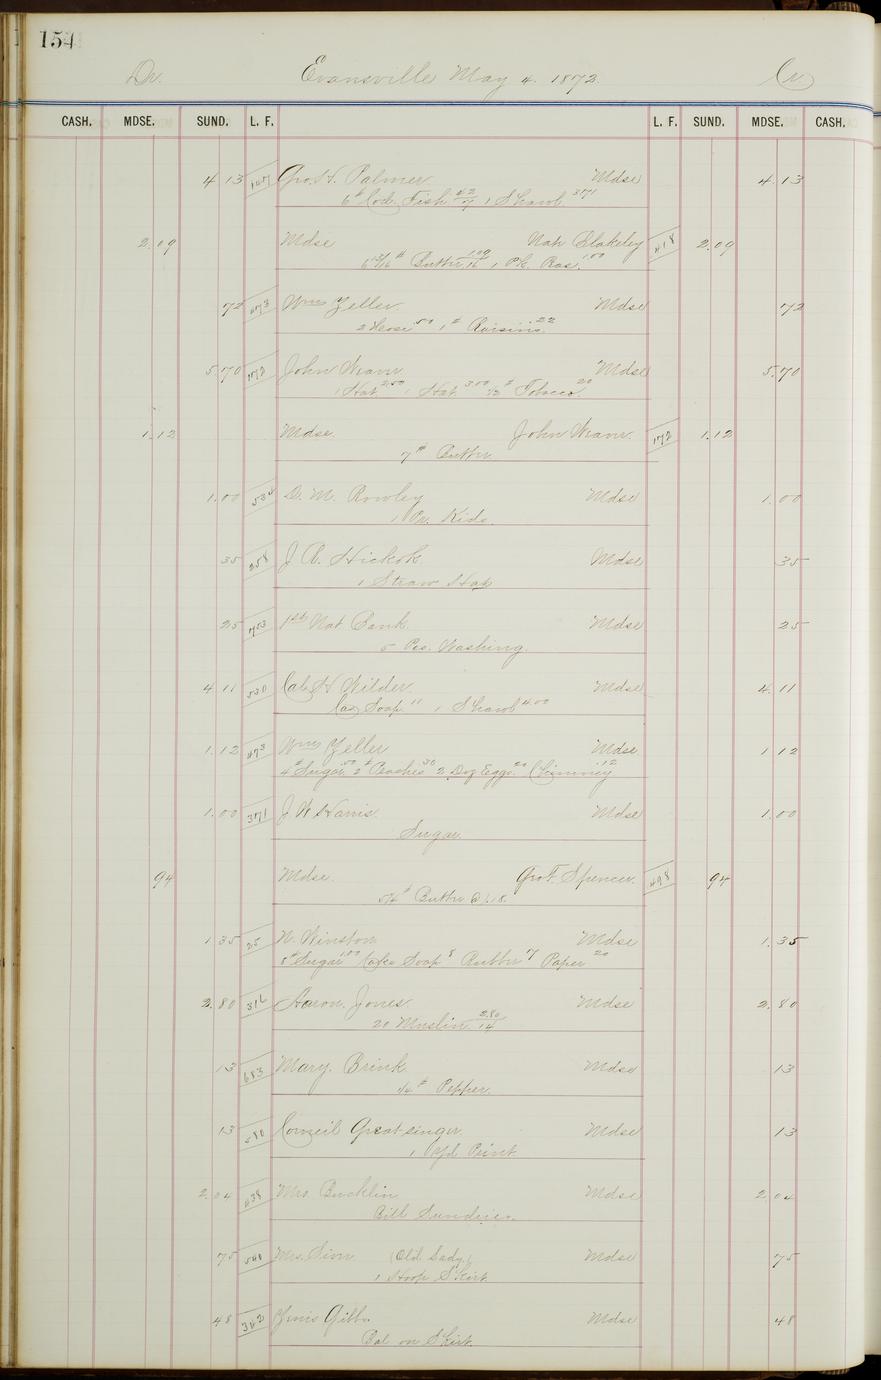 154
Dr. Evansville May 4. 1872. Cr.
CASH. MDSE. SUND. L. F. L. F. SUND. MDSE. CASH.
4 13 Geo. H. Palmer Mdse 4.13
6# Cod Fish 42/7 1 Shawl 371
2.09 Mdse Nap Blakeley 418 2.09
Butter 109/16 1 Pk. 1.00
72 473 Wm Zeller Mdse 72
2 Hose 50 1# Raisins 22
5.70 172 John Weaver Mdse 5.70
1 Hat 2.50 1 Hat 3.00 1/2# Tobacco 20
1.12 Mdse. John Weaver 172 1.12
7# Butter
1.00 534 D. M. Rowley Mdse 1.00
1 Pr. Kids.
35 258 J. R. Hickok Mdse 35
1 Straw Hat
25 1st Nat Bank Mdse 25
5 Pcs. Washing
4 11 530 Wilder Mdse 4.11
Soap 11 1 Shawl 4.00
1.12 473 Wm Zeller Mdse 1 12
4# Sugar 50 2# Peaches 30 2 Doz Eggs 20 Chimney 12
1.00 371 J W Harris Mdse 1.00
Sugar
94 Mdse. Geo. T. Spencer. 498 94
Butter @ .18
1 35 25 N. Winston Mdse 1.35
8# Sugar 1.00 Cake Soap 8 Rubber 7 Paper 20
2.80 316 Aaron Jones Mdse 2.80
20 Muslin 2.80/14
13 683 Mary. Brink Mdse 13
1/4# Pepper.
13 580 Greatsinger Mdse 13
1 Yd Print
2.04 438 Mrs. Bucklin Mdse 2.04
Bill Sundries.
75 540 Mrs. (Old Lady) Mdse 75
1 Hoop Skirt
48 362 Gibbs Mdse 48
Bal on Skirt.